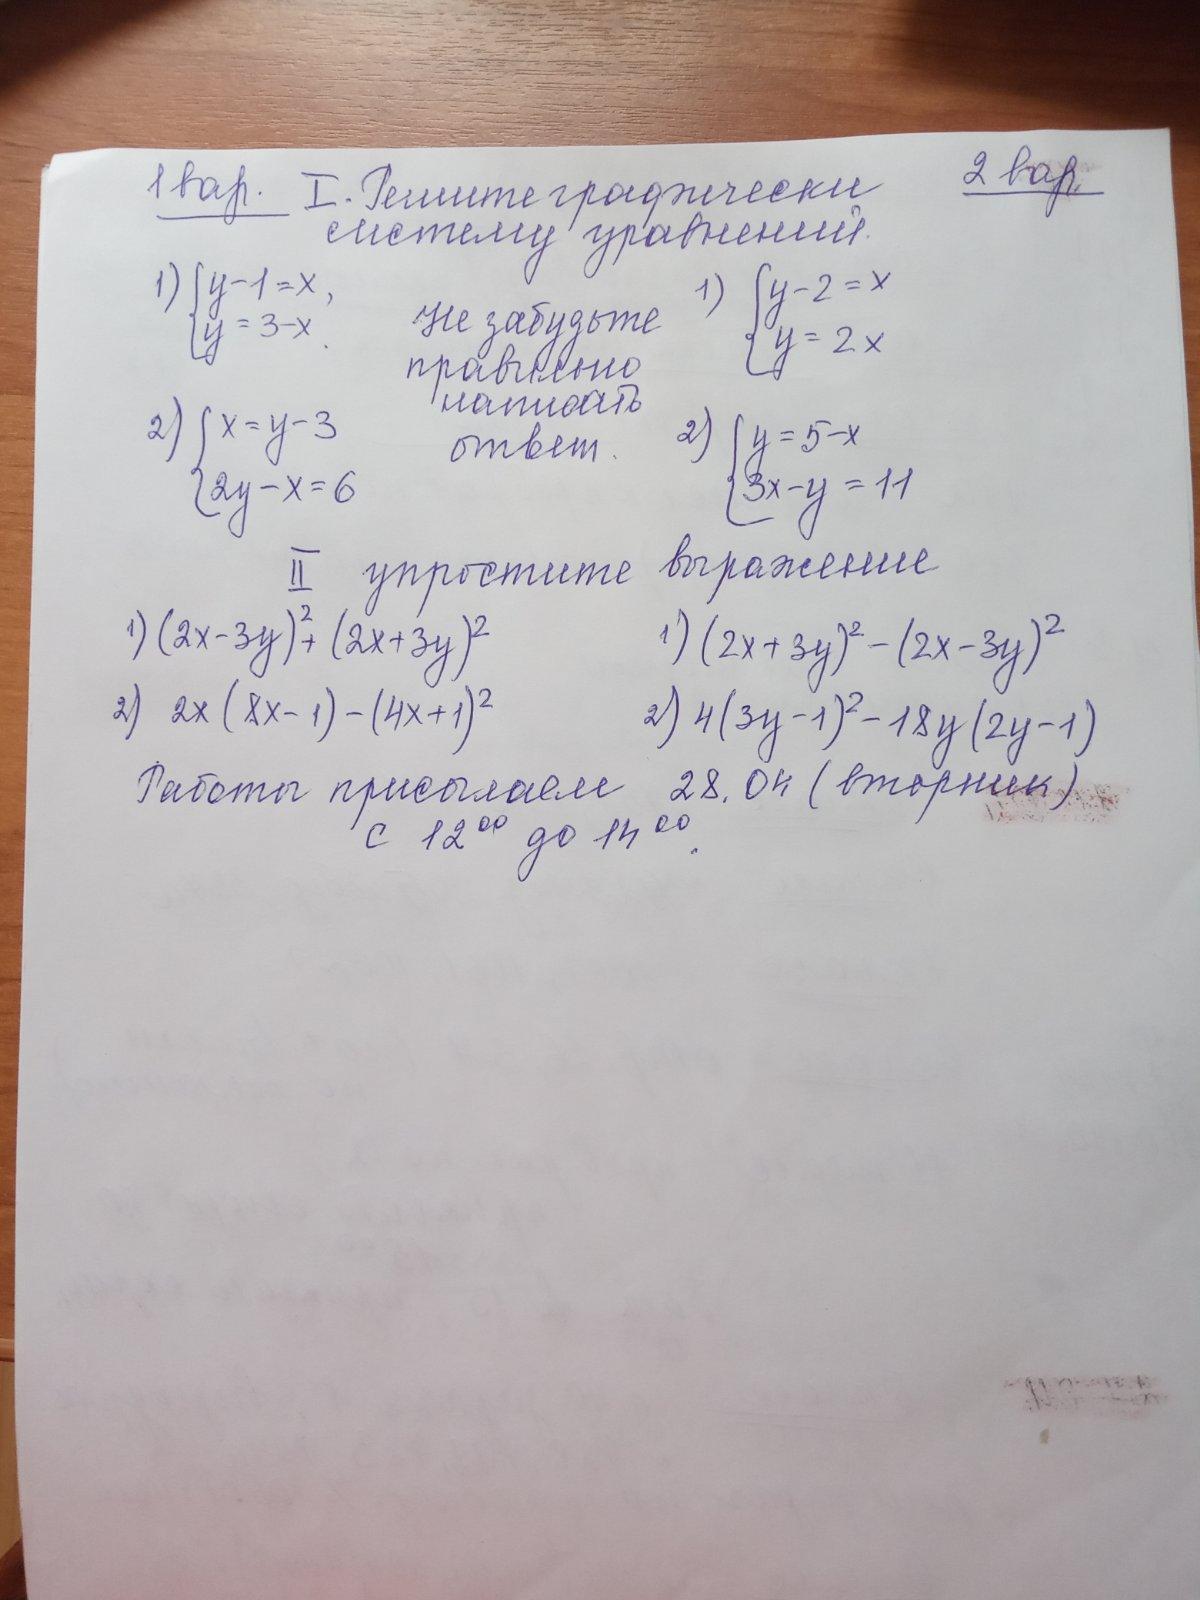 1 вар. I. Решите графически 2 вар.
систему уравнений.
1) { y-1=x, 1) { y-2=x
y=3-x. y=2x
Не забудьте
правильно
написать
ответ.
2) { x=y-3 2) { y=5-x
2y-x=6 3x-y=11
II упростите выражение
1) (2x-3y)²+(2x+3y)² 1) (2x+3y)²-(2x-3y)²
2) 2x(8x-1)-(4x+1)² 2) 4(3y-1)²-18y(2y-1)
Работы присылаем 28.04 (вторник)
с 12⁰⁰ до 14⁰⁰.